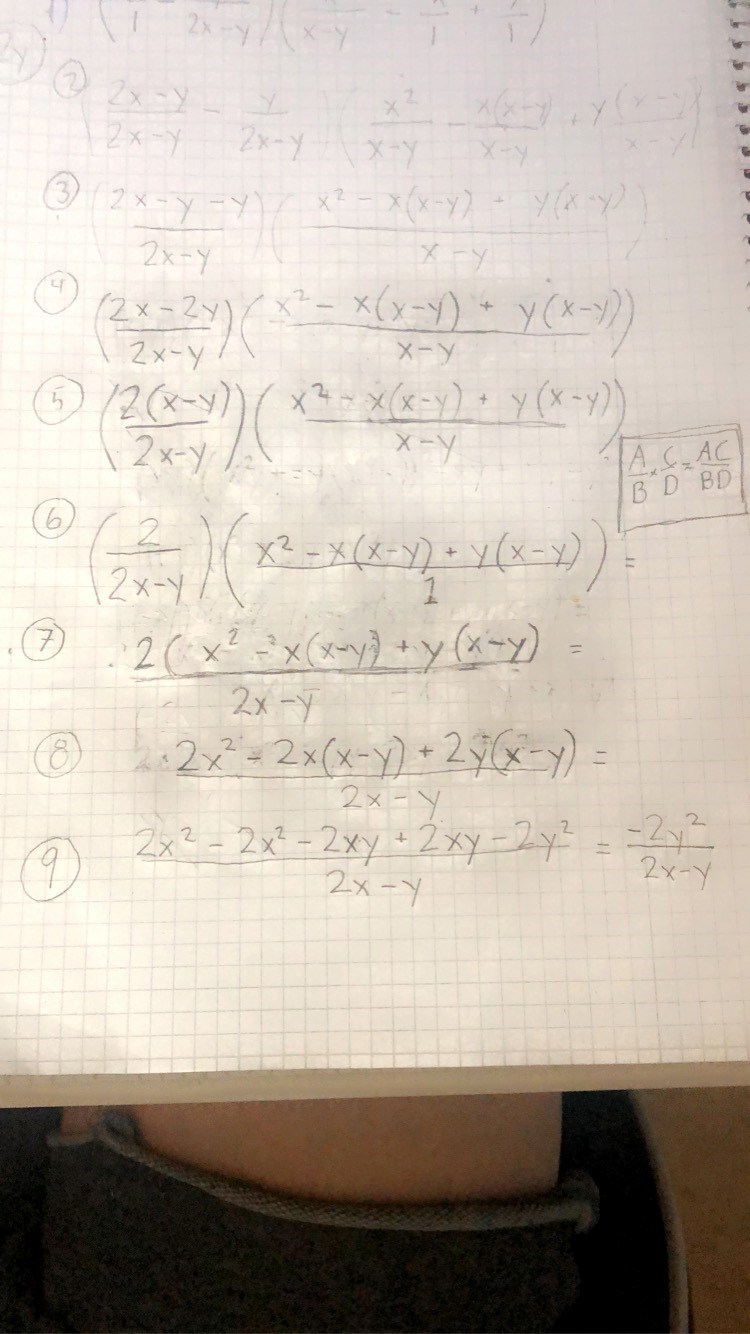 1) (/1 /2x-y)(/x-y - x/1 + y/1)
2y)
② (2x-y/2x-y - y/2x-y)(x²/x-y - x(x-y)/x-y + y(x-y)/x-y)
③ (2x-y-y/2x-y)(x² - x(x-y) + y(x-y)/x-y)
④ (2x-2y/2x-y)(x² - x(x-y) + y(x-y)/x-y)
⑤ (2(x-y)/2x-y)(x² - x(x-y) + y(x-y)/x-y)
A/B · C/D = AC/BD
⑥ (2/2x-y)(x² - x(x-y) + y(x-y)/1) =
⑦ 2(x² - x(x-y) + y(x-y)/2x-y =
⑧ 2x² - 2x(x-y) + 2y(x-y)/2x-y =
⑨ 2x² - 2x² - 2xy + 2xy - 2y²/2x-y = -2y²/2x-y